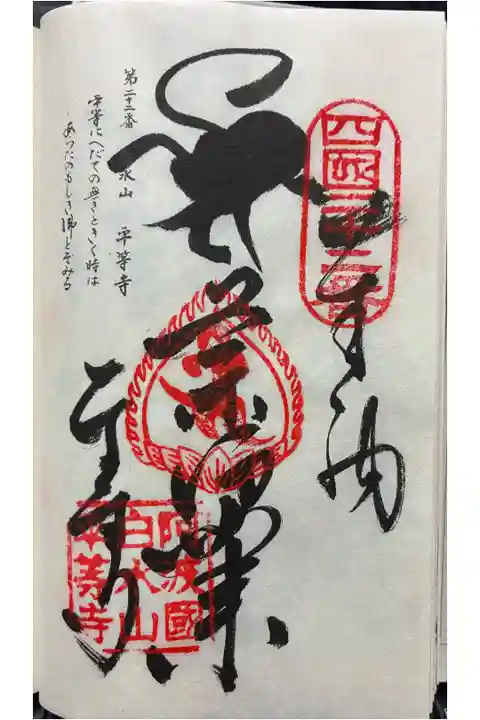 四國二十二番
奉納
薬師如来
平等寺
阿波國
白水山
平等寺
第二十二番 水山 平等寺
平等にへだての無きときく時は
あらたのもしき佛とぞみる